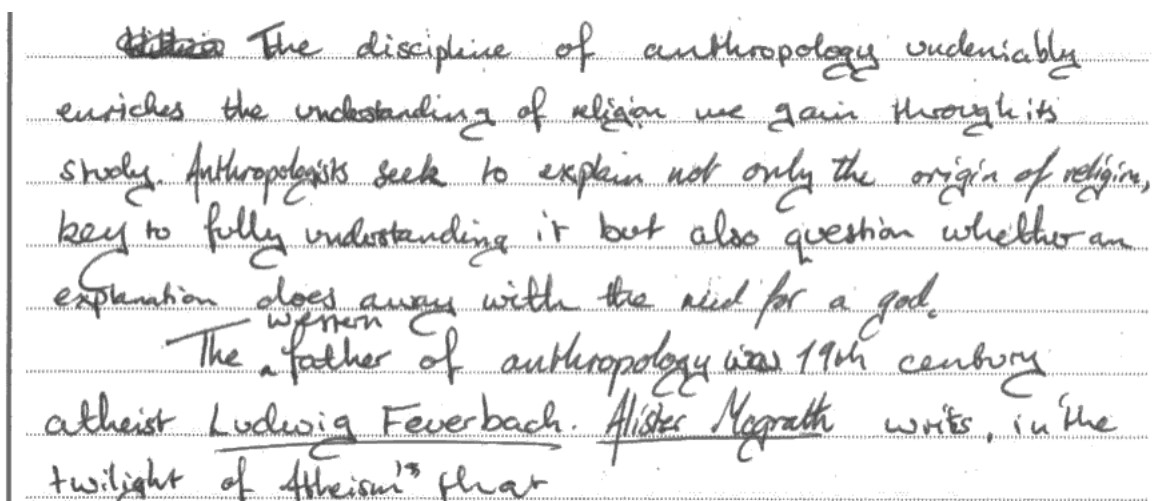 The discipline of anthropology undeniably
enriches the understanding of religion we gain through its
study. Anthropologists seek to explain not only the origin of religion,
key to fully understanding it but also question whether an
explanation does away with the need for a god.
western
The father of anthropology was 19th century
atheist Ludwig Feuerbach. Alister Mcgrath writes, in 'the
twilight of Atheism' that